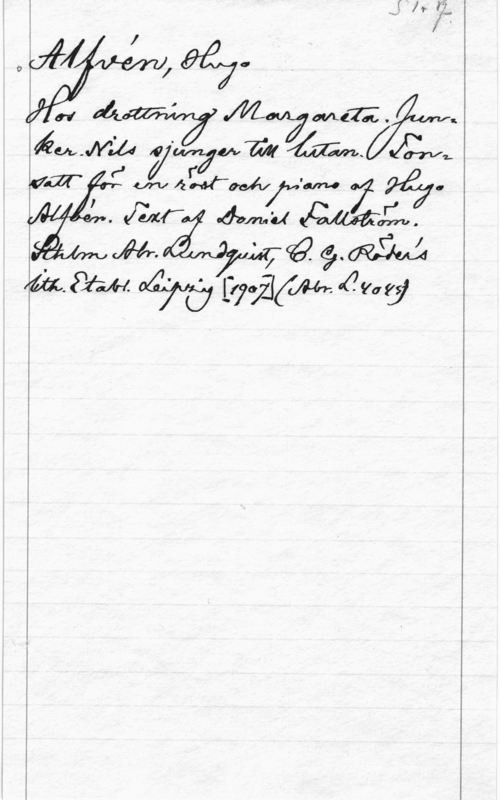 S 1+ p.
Alfvén, Hugo
Hos drottning Margareta. Jun-
ker Nils sjunger till lutan. Ton-
satt för en röst och piano af Hugo
Alfvén. Text af Daniel Fallström.
Sthlm Abr. Lundquist, C. G. Röder's
lith. Etabl. Leipzig [1907] (Abr. L. 4045)